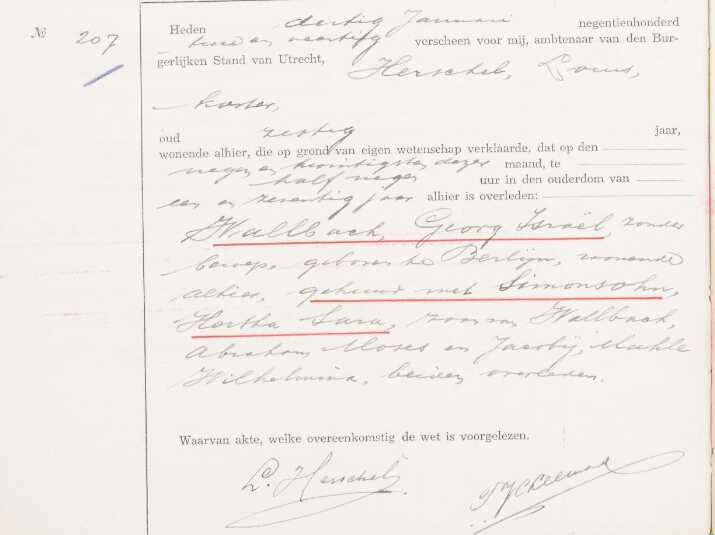 № 207
Heden dertig Januari negentienhonderd
twee en veertig verscheen voor mij, ambtenaar van den Bur-
gerlijken Stand van Utrecht, Herschel, Louis,
koster,
oud zestig jaar,
wonende alhier, die op grond van eigen wetenschap verklaarde, dat op den
negen en twintigsten dezer maand, te
half negen uur in den ouderdom van
een en zeventig jaar alhier is overleden:
Wallbach, Georg Israël, zonder
beroep, geboren te Berlijn, wonende
alhier, gehuwd met Simonsohn,
Hertha Sara, zoon van Wallbach,
Abraham Moses en Jacobij,
Wilhelmina, beiden overleden.
Waarvan akte, welke overeenkomstig de wet is voorgelezen.
L. Herschel